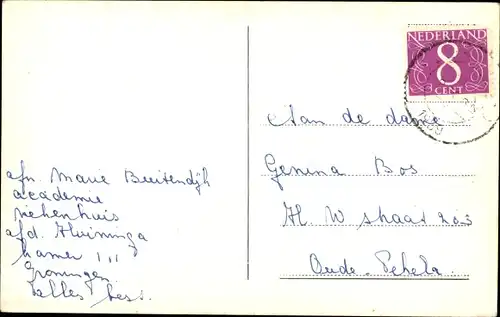 NEDERLAND
8
CENT
afz. Marie Buitendijk
academie
ziekenhuis
afd. Huizinga
kamer 111
Groningen
Alles best.
Aan de dame
Gemina Bos
H W straat 203
Oude-Pekela